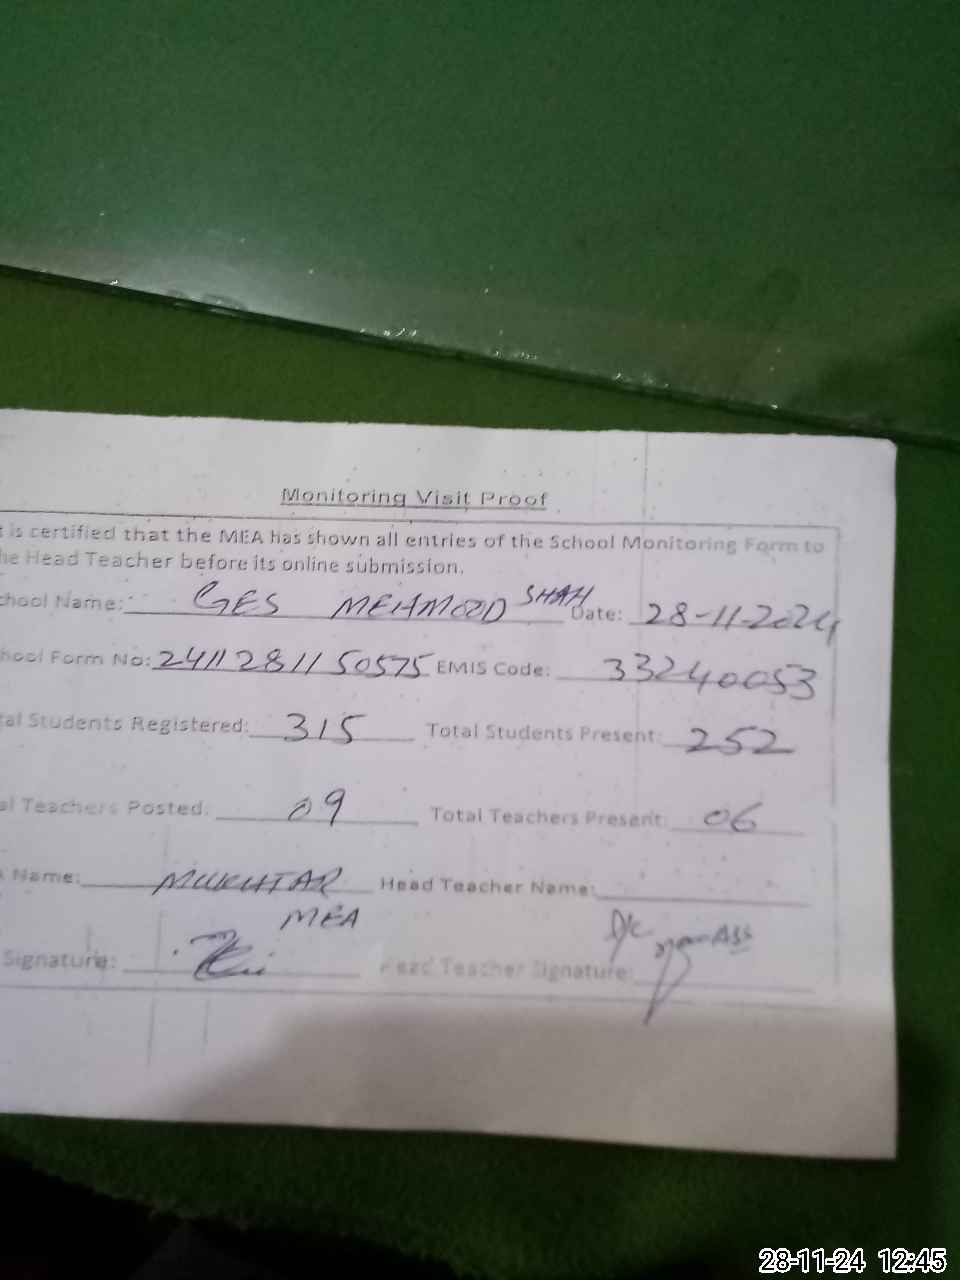 Monitoring Visit Proof
t is certified that the MEA has shown all entries of the School Monitoring Form to
he Head Teacher before its online submission.
chool Name: GES MEHMOOD SHAH Date: 28-11-2024
hool Form No: 2411281150575 EMIS Code: 33240053
tal Students Registered: 315 Total Students Present: 252
al Teachers Posted: 09 Total Teachers Present: 06
Name: MUKHTAR Head Teacher Name:
MEA
Signature: Head Teacher Signature:
28-11-24 12:45